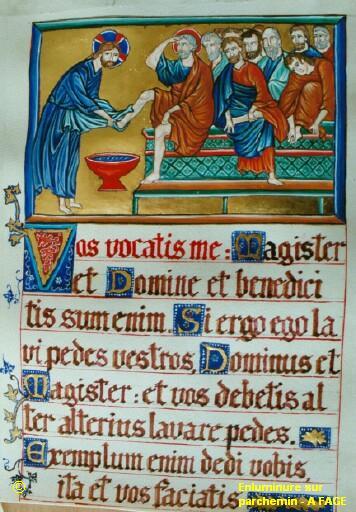 Vos vocatis me: Magister
et Domine et benedici
tis sum enim. Si ergo ego la
vi pedes vestros, Dominus et
Magister: et vos debetis al
ter alterius lavare pedes.
Exemplum enim dedi vobis
ita et vos faciatis
© Enluminure sur
parchemin - A FAGE